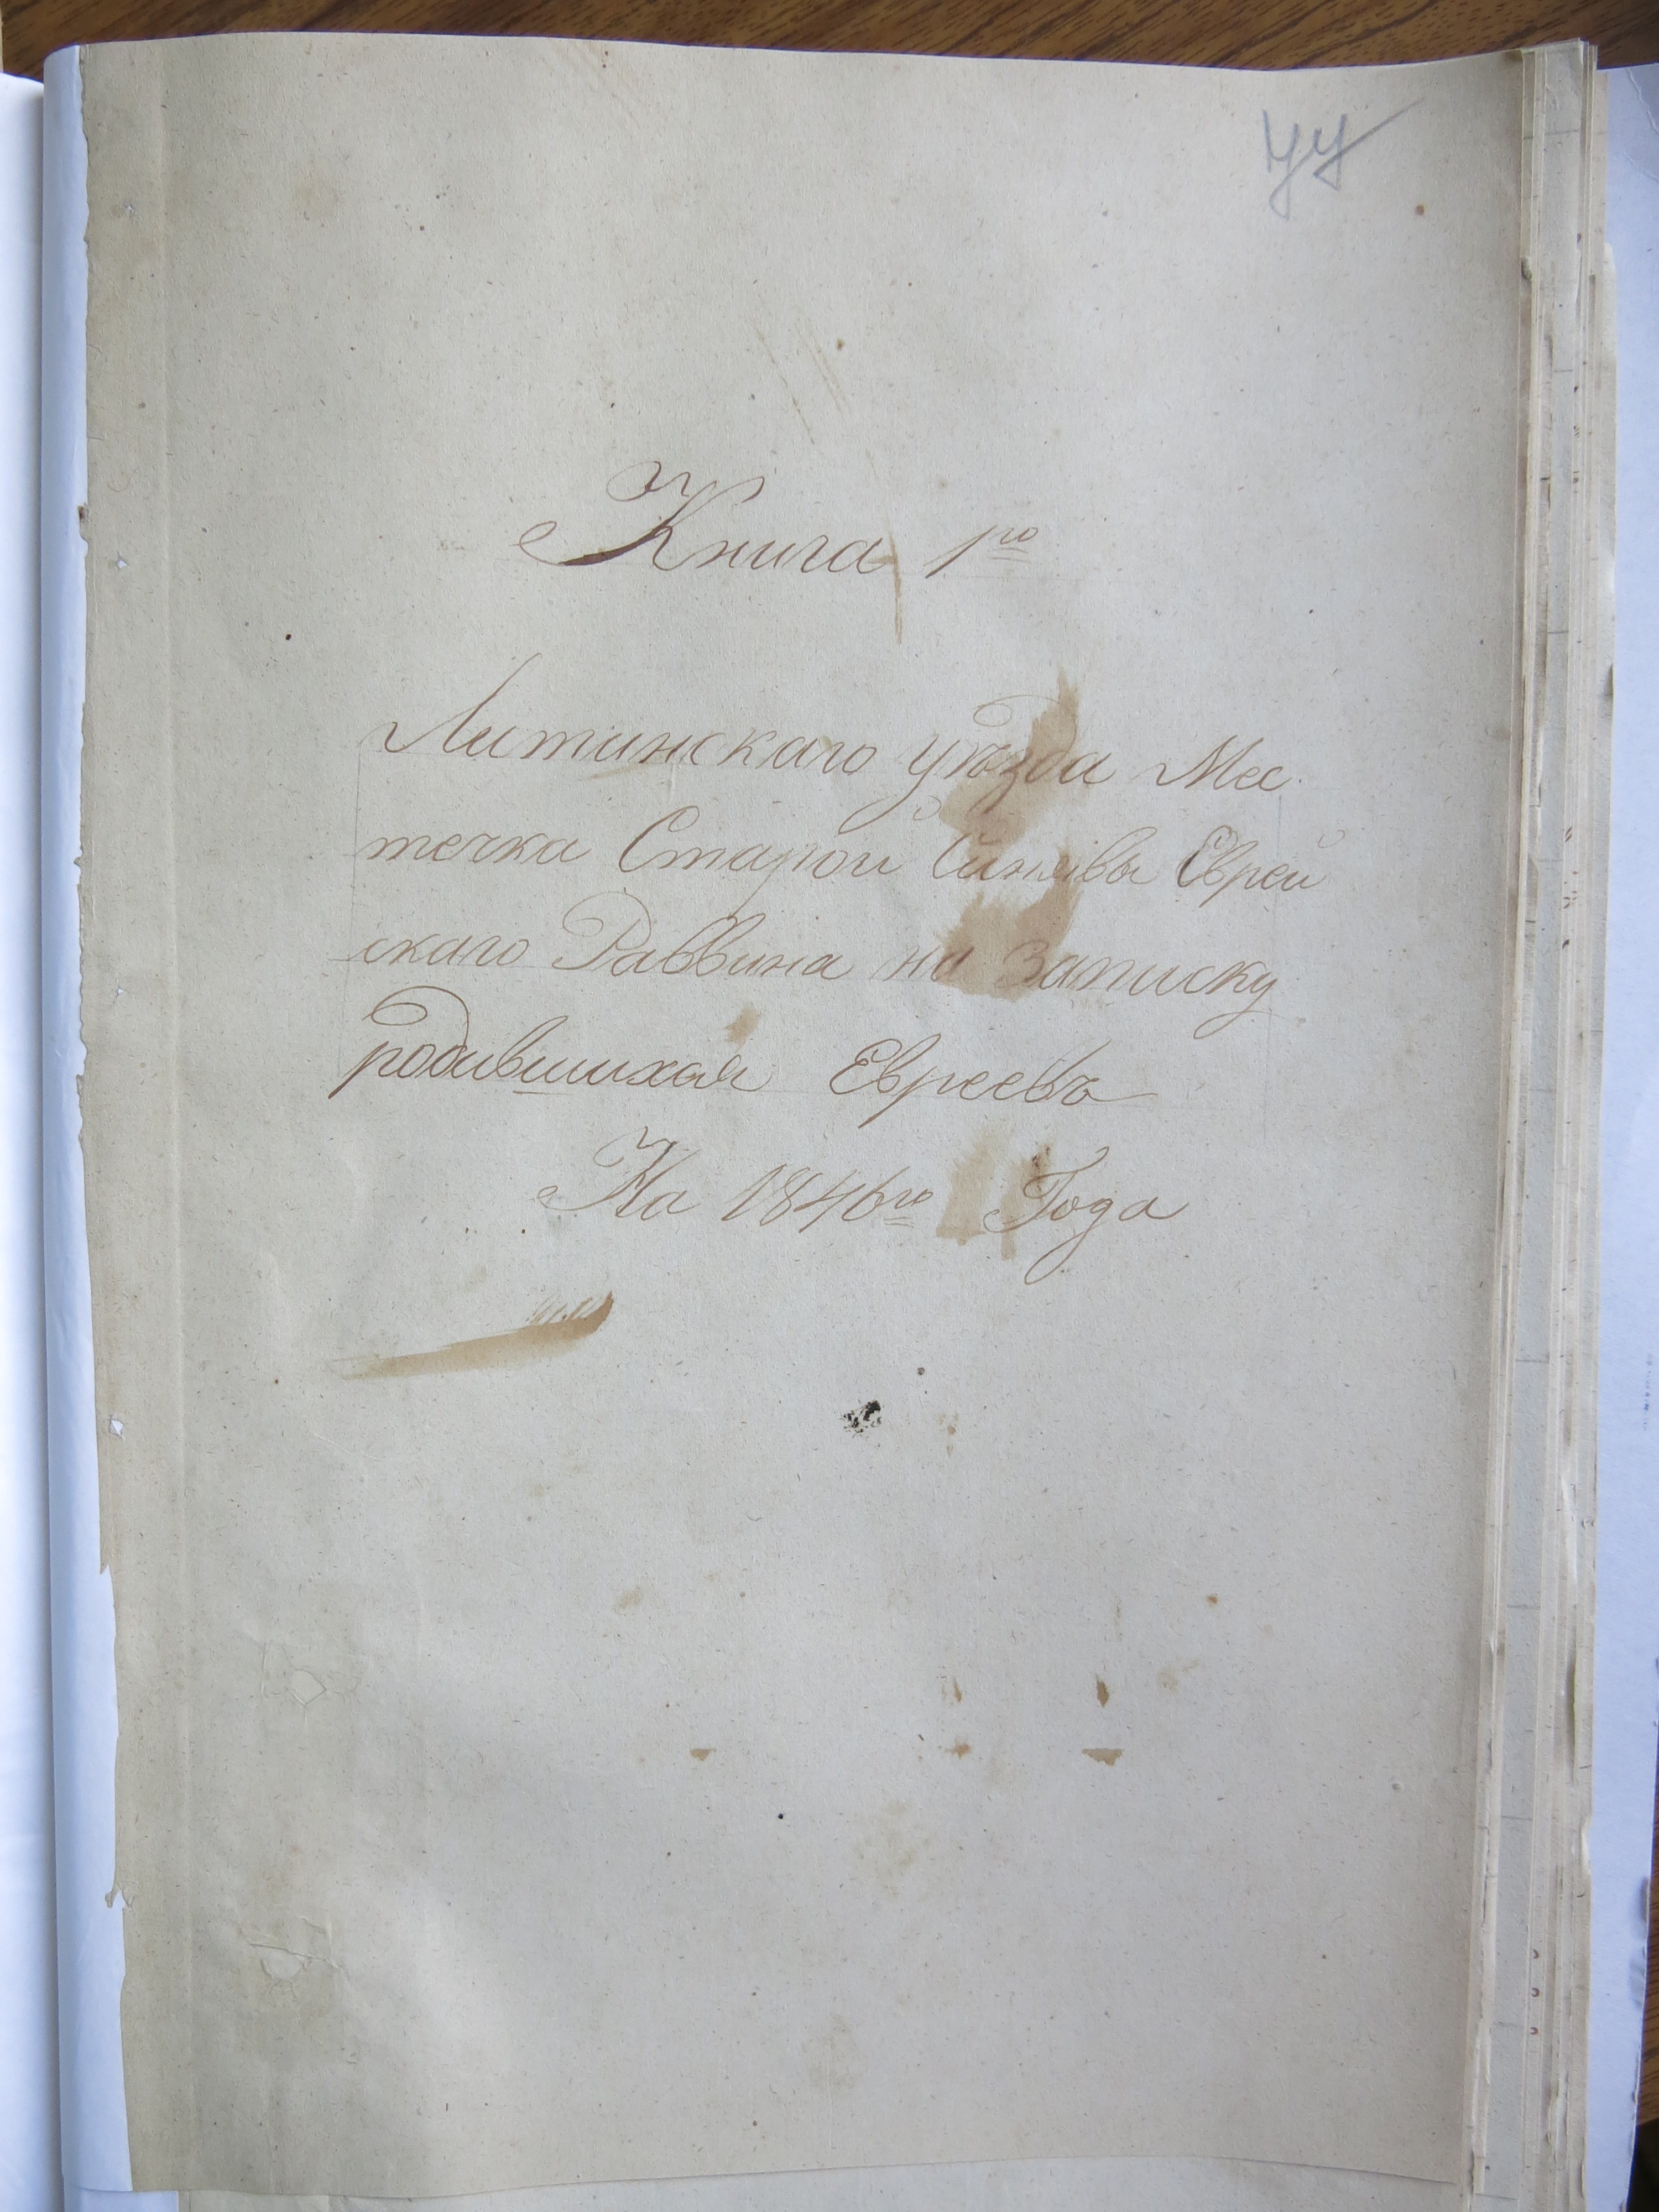 44
Книга 1го
Литинскаго уѣзда Мес
течка Старой Синявы Еврей
скаго Раввина на записку
родившихся Евреевъ
На 1846го Года